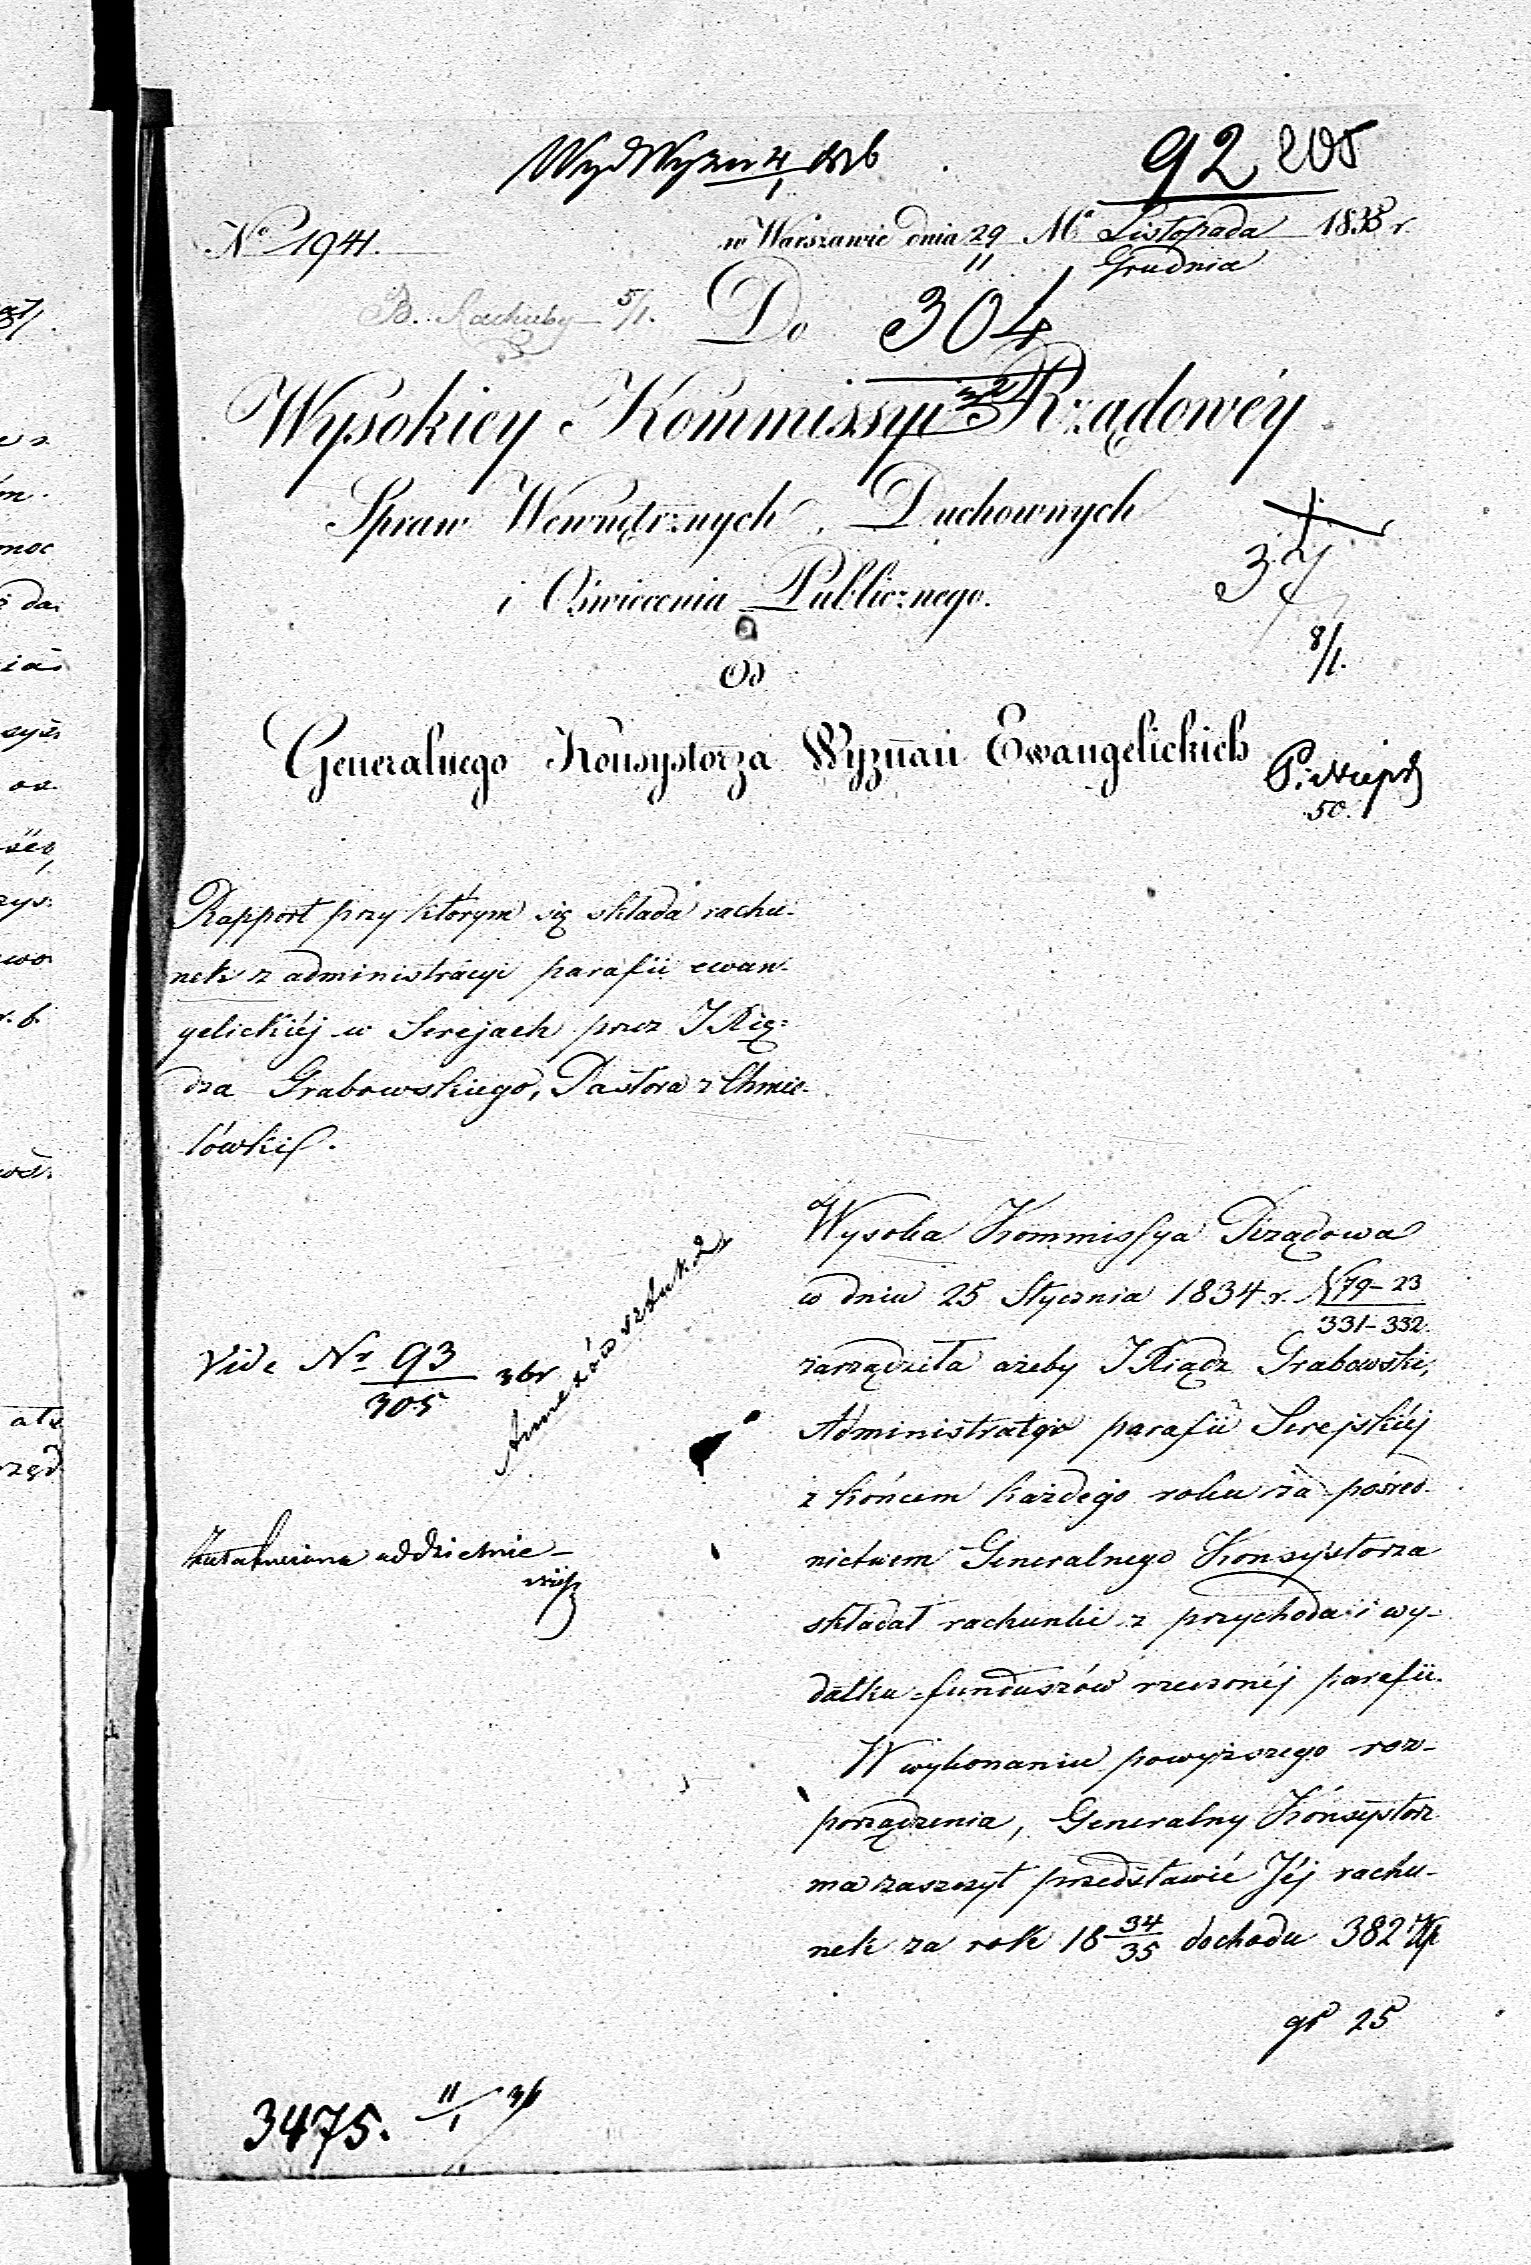 92 205
No 1941.
w Warszawie dnia 29 Ma Listopada 1835 r.
11 Grudnia
B. Rachuby 5/1.
Do 304
Wysokiey Kommissyi Rządowéy
Spraw Wewnętrznych, Duchownych
i Oświecenia Publicznego.
37
8/1.
Od
Generalnego Konsystorza Wyznań Ewangelickich
50.
Rapport przy którym się składa rachu-
nek z administracyi parafii ewan-
gelickiéj w Serejach przez JXię-
dza Grabowskiego, Pastora z Chmie-
lówki.
Wysoka Kommissya Rządowa
w dniu 25 Stycznia 1834 r. N 79-23
331-332.
zarządziła ażeby JXiądz Grabowski,
Administrator parafii Serejskiéj
z końcem każdego roku za pośred-
nictwem Generalnego Konsystorza
składał rachunki z przychodu i wy-
datku funduszów rzeczonéj parafii.
W wykonaniu powyższego roz-
porządzenia, Generalny Konsystorz
ma zaszczyt przedstawić Jéj rachu-
nek za rok 18 34/35 dochodu 382 Zł
gr 25
Annexów sztuk 2
Vide Nr 93
305
Załatwiona oddzielnie
3475. 11/1 36